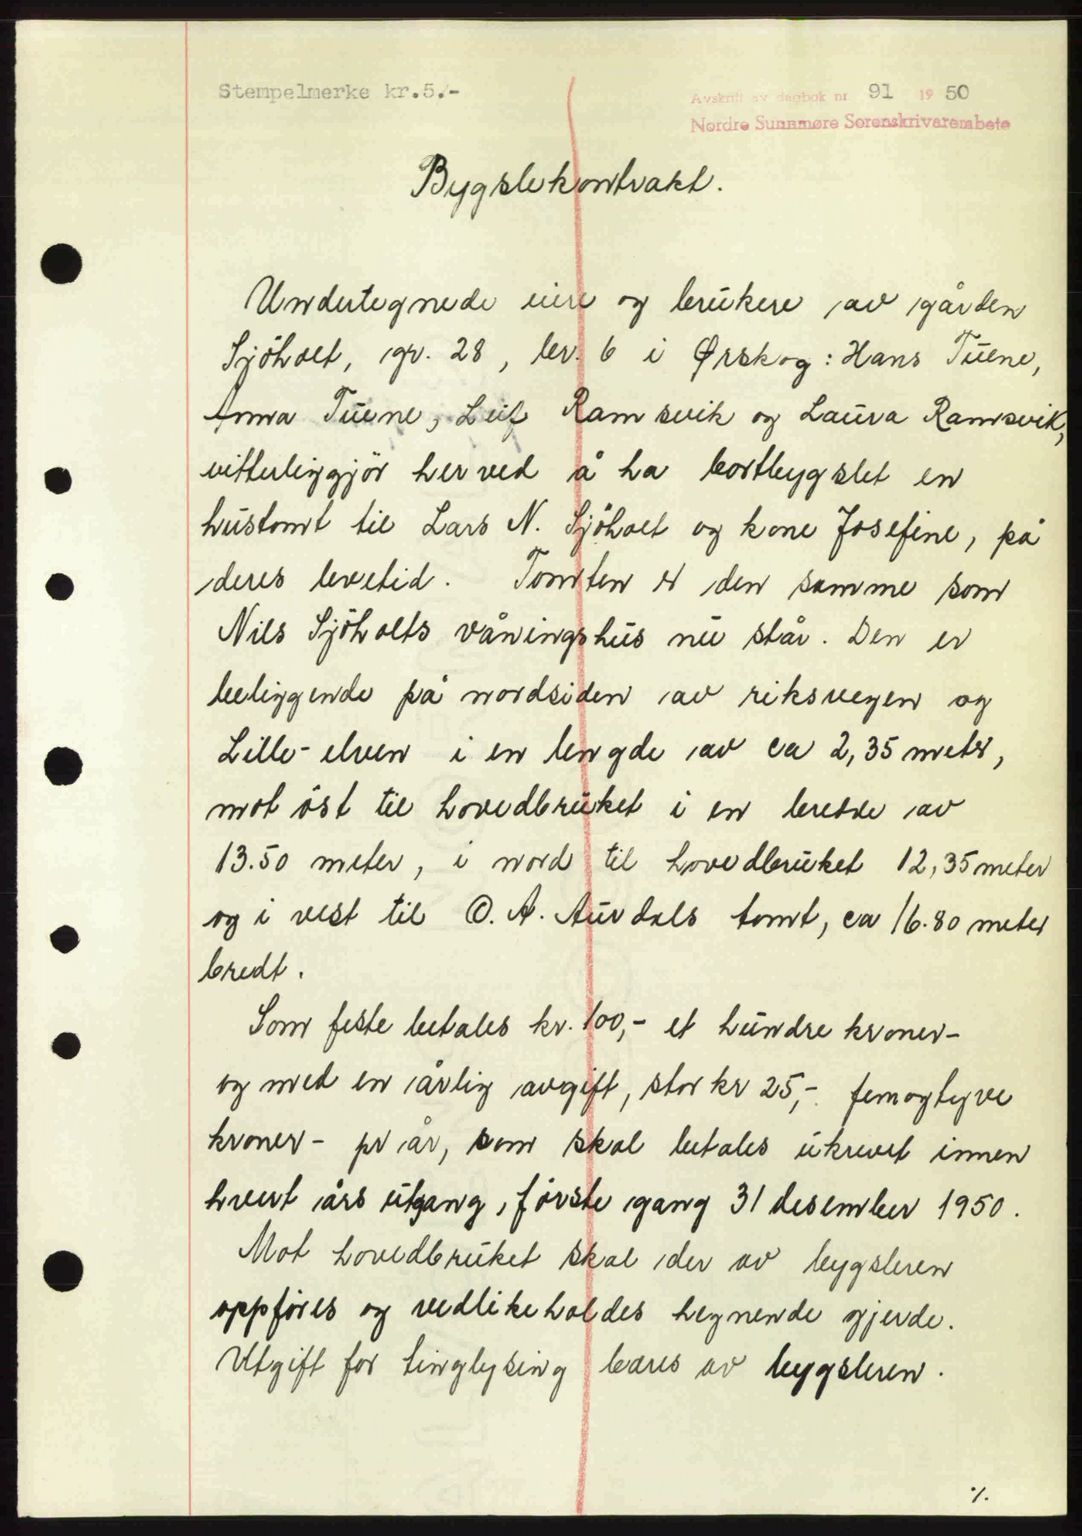 Stempelmerke kr.5.-
Avskrift av dagbok nr. 91 1950
Nordre Sunnmøre Sorenskriverembete
Bygslekontrakt.
Undertegnede eiere og brukere av gården
Sjöholt, gr. 28, br. 6 i Ørskog: Hans Tuene,
Anna Tuene, Leif Ramsvik og Laura Ramsvik,
vitterliggjör herved å ha bortbygslet en
hustomt til Lars N. Sjöholt og kone Josefine, på
deres levetid. Tomten er den samme som
Nils Sjöholts våningshus nu står. Den er
beliggende på nordsiden av riksvegen og
Lille-elven i en lengde av ca 2,35 meter,
mot öst til hovedbruket i en bredde av
13.50 meter, i nord til hovedbruket 12,35 meter
og i vest til O. A. Aurdals tomt, ca 16.80 meter
bredt.
Som feste betales kr. 100,- et hundre kroner-
og med en årlig avgift, stor kr 25,- femogtyve
kroner- pr år, som skal betales ukrevet innen
hvert års utgang, förste gang 31 desember 1950.
Mot hovedbruket skal der av bygsleren
oppföres og vedlikeholdes hegnende gjerde.
Utgift for tinglysing bæres av bygsleren.
%.